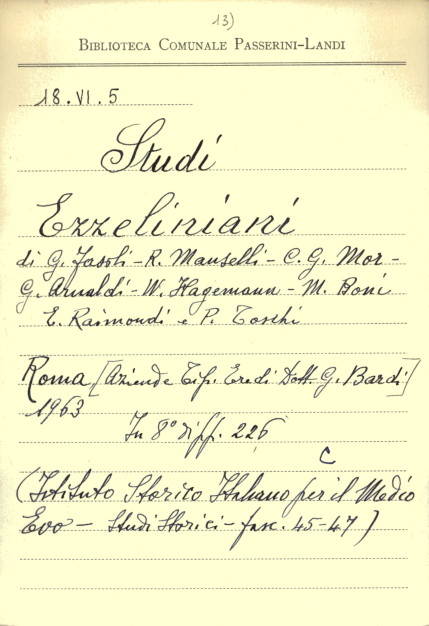 13)
BIBLIOTECA COMUNALE PASSERINI-LANDI
18.VI.5
Studi
Ezzeliniani
di G. Fasoli - R. Manselli - C. G. Mor -
G. Arnaldi - W. Hagemann - M. Boni
E. Raimondi e P. Toschi
Roma [Aziende Tip. Eredi Dott. G. Bardi]
1963
In 8° di pp. 226
C
(Istituto Storico Italiano per il Medio
Evo - Studi Storici - fasc. 45-47)